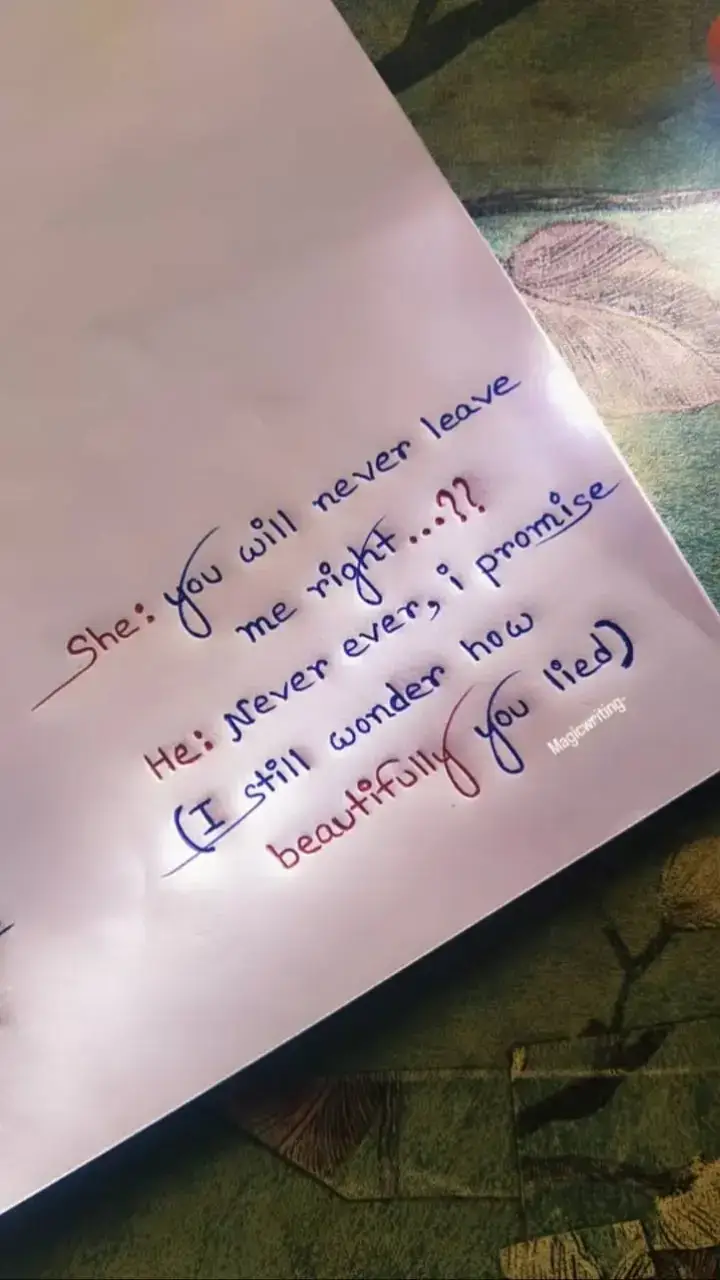 She: you will never leave
me right...??
He: Never ever, i promise
(I still wonder how
beautifully you lied)
Magicwriting-